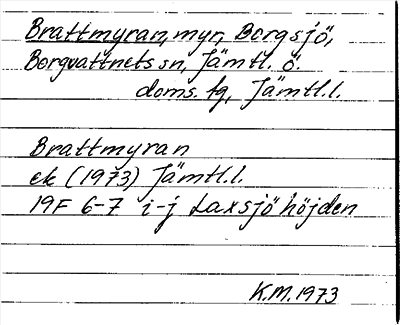 Brattmyran, myr, Borgsjö,
Borgvattnets sn, Jämtl. ö.
doms. tg, Jämtl.l.
Brattmyran
ek (1973) Jämtl.l.
19F 6-7 i-j Laxsjöhöjden
K.M. 1973